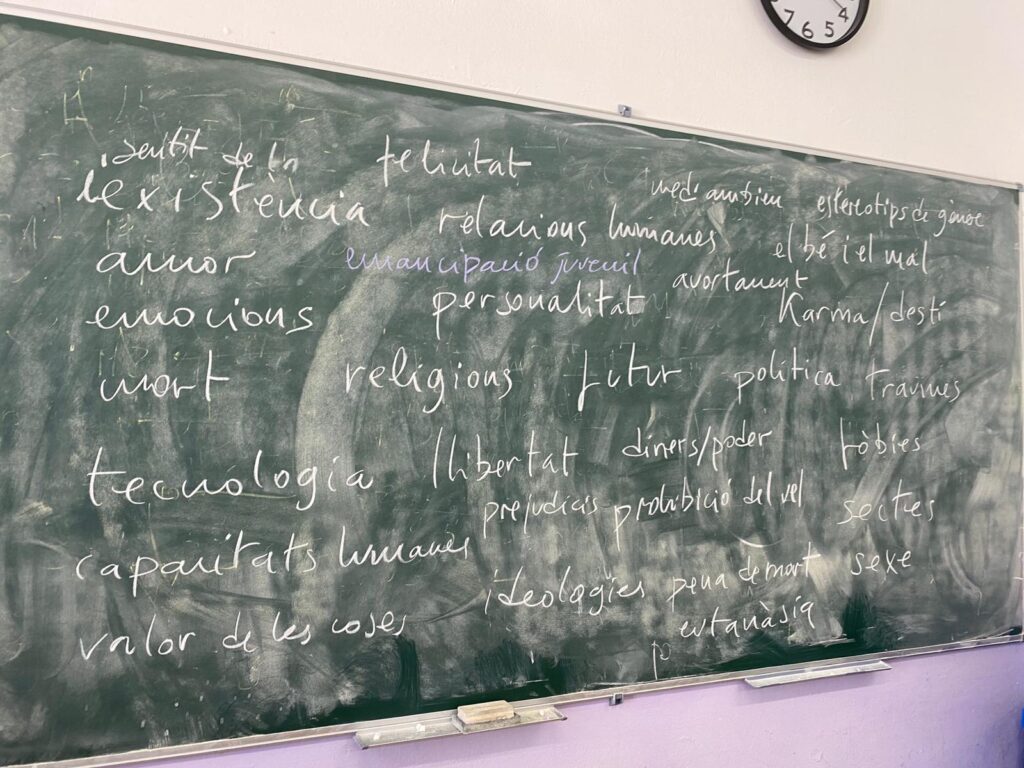 sentit de la
existència
felicitat
medi ambien
estereotips de gènere
relacions humanes
el bé i el mal
amor
emancipació juvenil
avortament
emocions
personalitat
Karma/destí
mort
religions
futur
política
traumes
tecnologia
llibertat
diners/poder
fòbies
prejudicis
prohibició del vel
sectes
capacitats humanes
ideologies
pena de mort
sexe
valor de les coses
eutanàsia
7 6 5 4